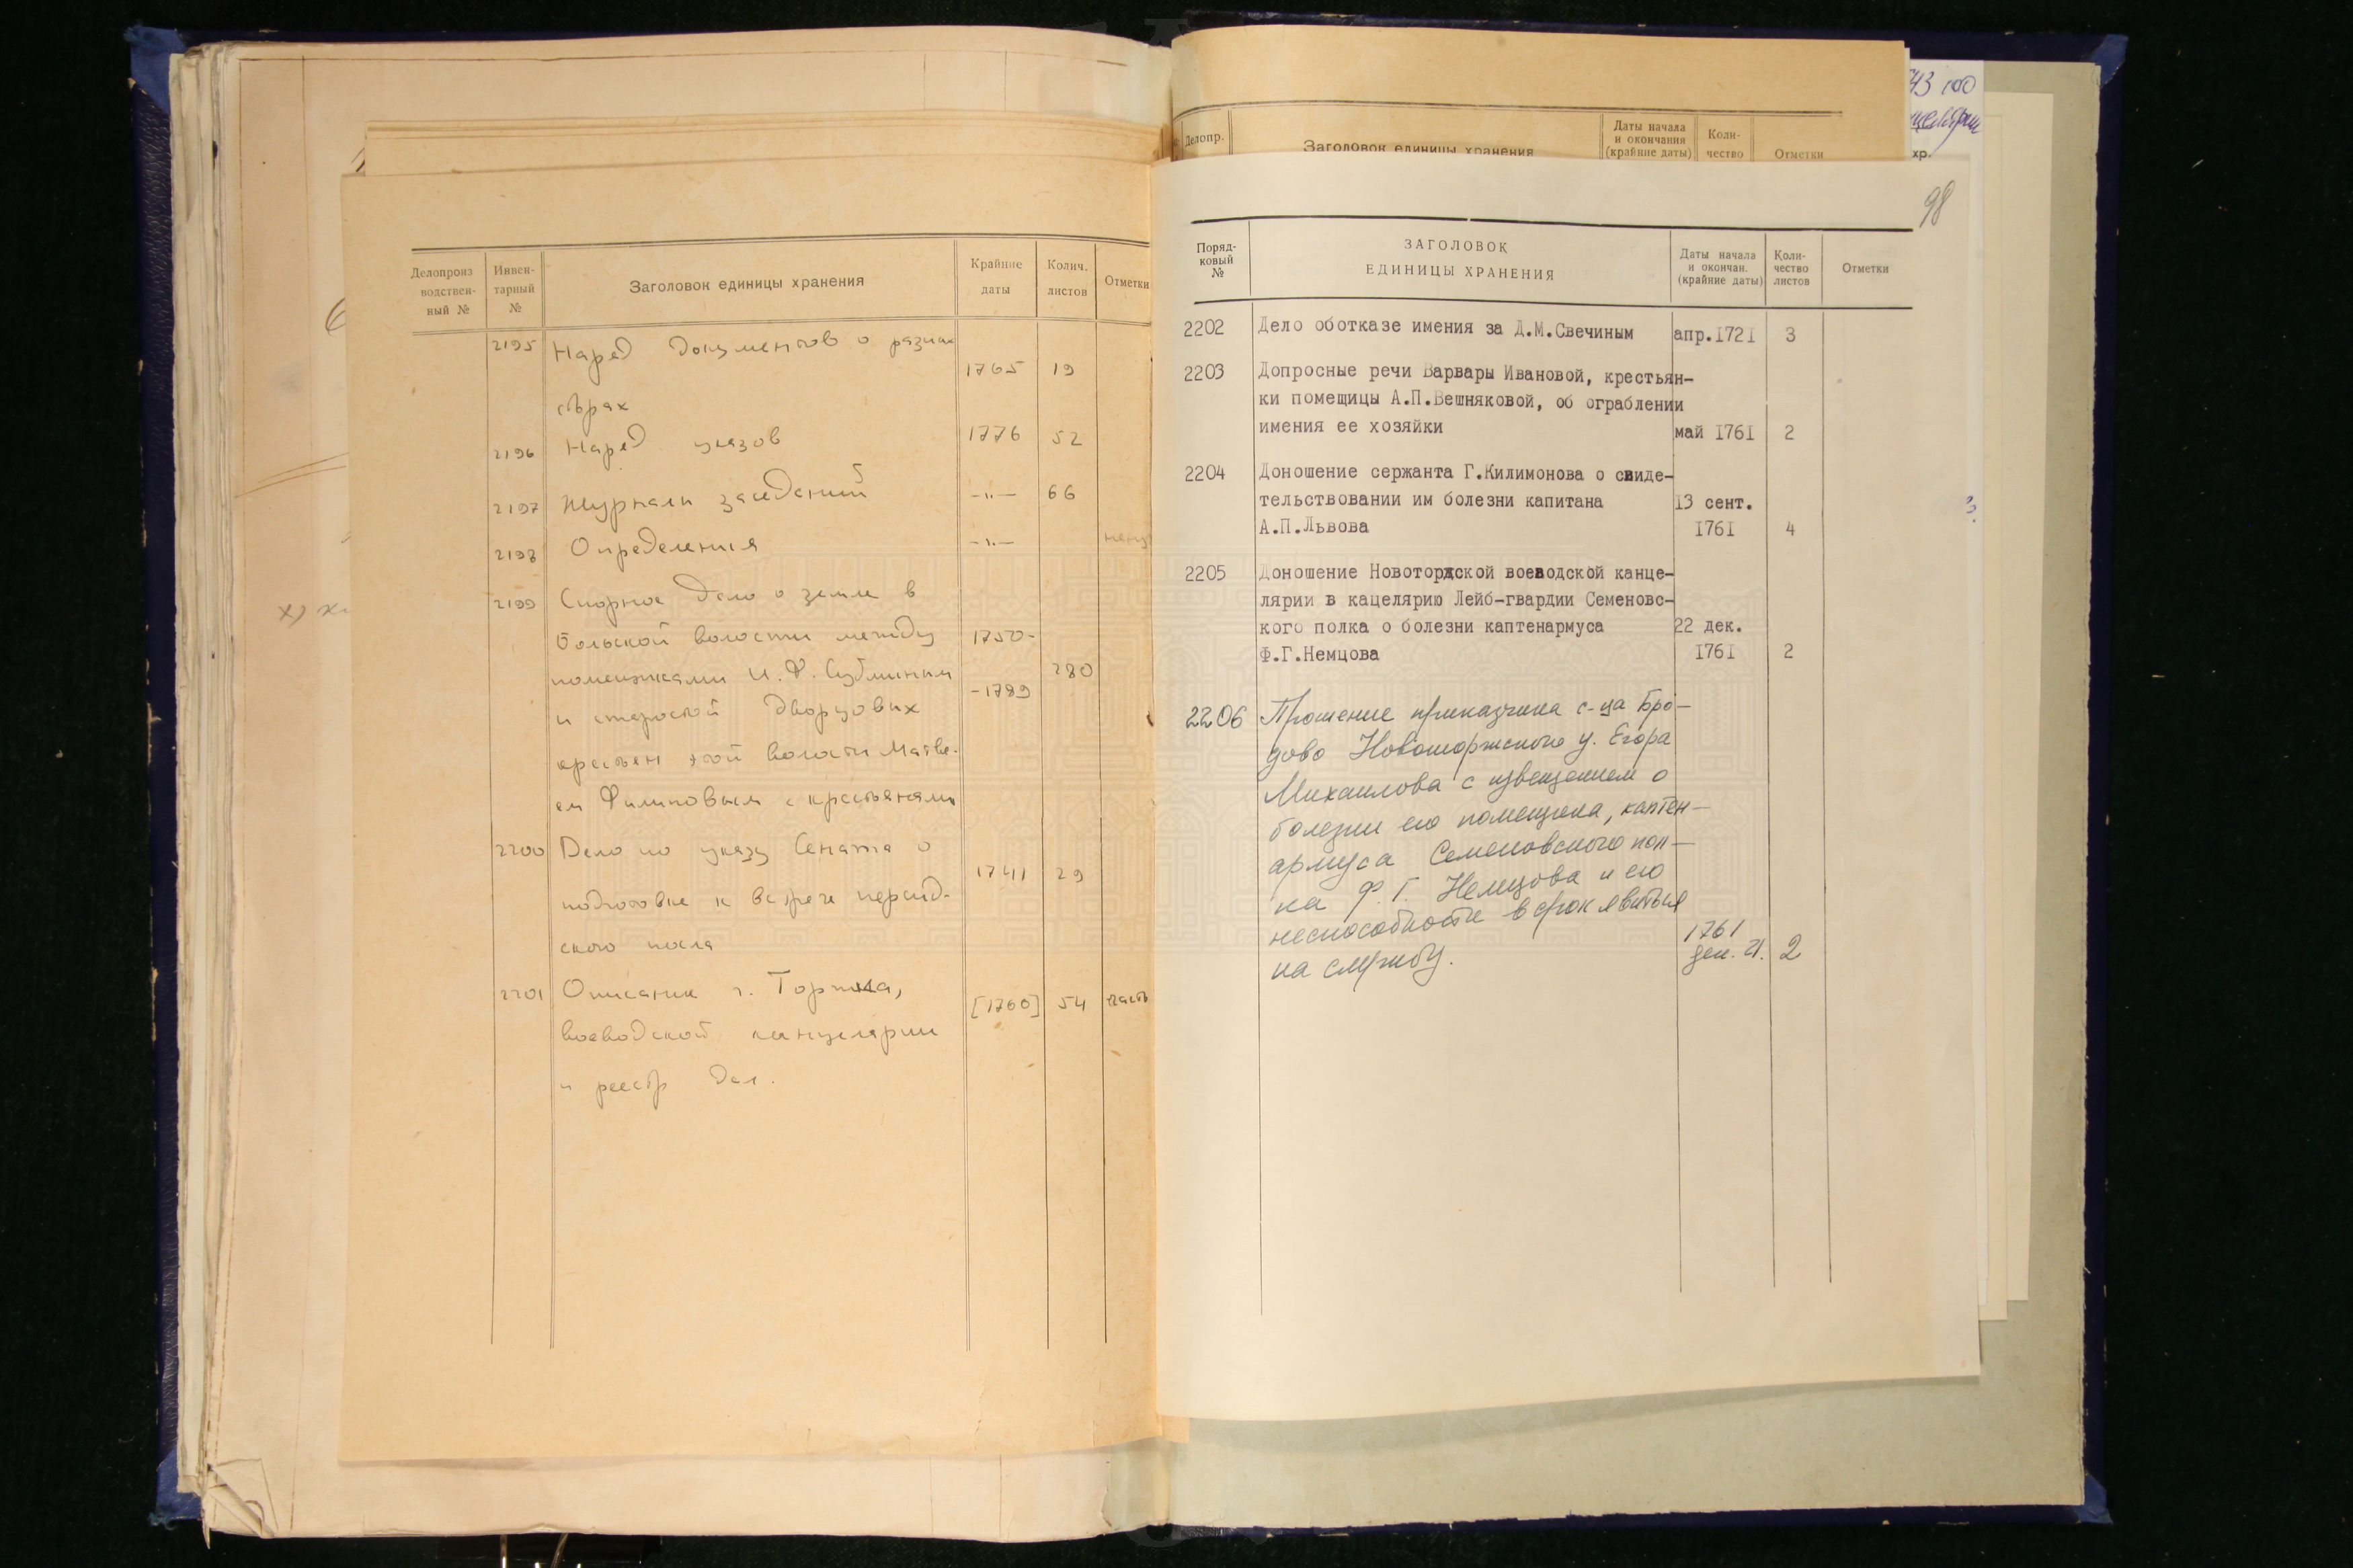 Делопроиз
водствен-
ный №
Инвен-
тарный
№
Заголовок единицы хранения
Крайние
даты
Колич.
листов
Отметки
2195 Наряд документов о разных
1765 19
2196 Наряд указов 1776 52
2197 Журналы заседаний -"- 66
2198 Определения -"-
2199 Спорное дело о земле в
волости между 1750-
помещиками И. Ф. 280
и старостой дворцовых -1789
крестьян этой волости Матве-
ем Филиповым с крестьянами
2200 Дело по указу Сената о
1741 29
подготовке к встрече персид-
ского посла
2201 Описание г. Торжка, [1760] 54 часть
воеводской канцелярии
и реестр дел.
Делопр.
Заголовок единицы хранения
Даты начала
и окончания
(крайние даты)
Коли-
чество
Отметки
хр.
98
Поряд-
ковый
№
ЗАГОЛОВОК
ЕДИНИЦЫ ХРАНЕНИЯ
Даты начала
и окончан.
(крайние даты)
Коли-
чество
листов
Отметки
2202 Дело оботказе имения за Д.М.Свечиным апр.1721 3
2203 Допросные речи Варвары Ивановой, крестьян-
ки помещицы А.П.Вешняковой, об ограблении
имения ее хозяйки май 1761 2
2204 Доношение сержанта Г.Килимонова о свиде-
тельствовании им болезни капитана 13 сент.
А.П.Львова 1761 4
2205 Доношение Новоторжской воеводской канце-
лярии в кацелярию Лейб-гвардии Семеновс-
кого полка о болезни каптенармуса 22 дек.
Ф.Г.Немцова 1761 2
2206 Прошение приказчика с-ца Бро-
дово Новоторжского у. Егора
Михаилова с извещением о
болезни его помещика, каптен-
армуса Семеновского пол-
ка Ф. Г. Немцова и его
неспособности в срок явиться
на службу. 1761
дек. 21. 2